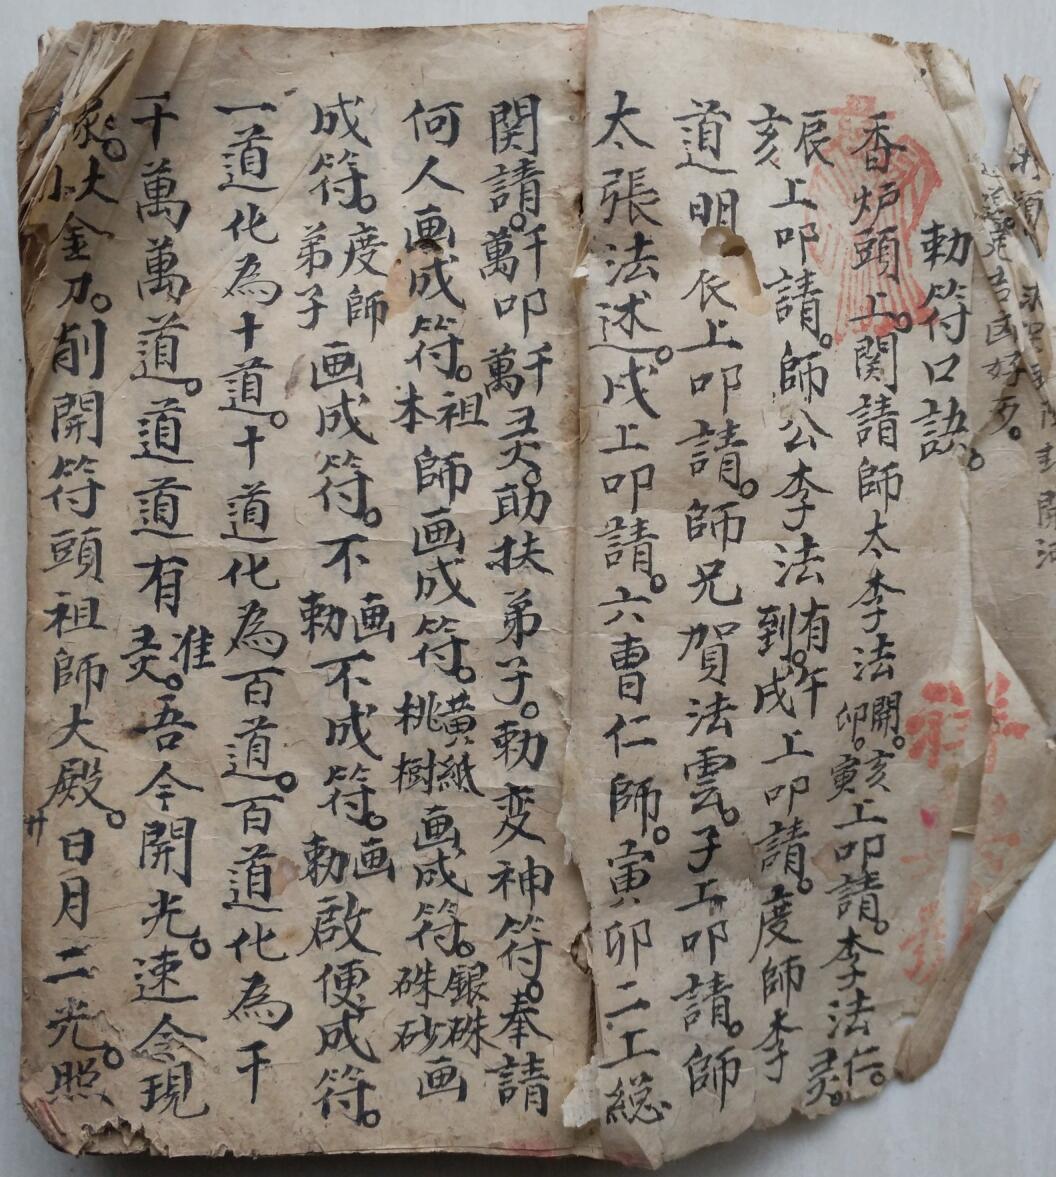 勅符口訣。
香炉頭上。関請師太李法開。卯。亥寅上叩請。李法仁。灵。
辰亥上叩請。師公李法有到。午戌上叩請。度師李
道明辰上叩請。師兄賀法雲。子上叩請。師
太張法述。戌上叩請。六曹仁師。寅卯二工総
関請。千萬叩千萬灵。助扶弟子。勅变神符。奉請
何人画成符。祖本師画成符。黄紙桃樹画成符。銀硃硃砂画
成符。度師弟子画成符。不画勅不成符。画勅啟便成符。
一道化為十道。十道化為百道。百道化為千
千萬萬道。道道有准灵。吾今開光。速令現
象。大小金刀。削開符頭祖師大殿。日月二光。照